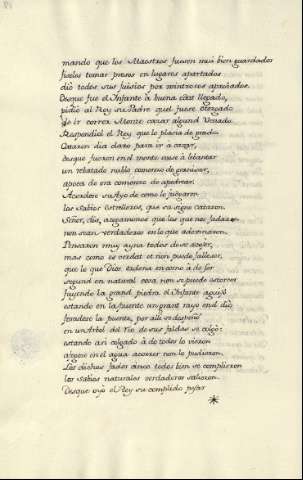 mando que los Maestros fuesen mui bien guardados
facelos tomar presos en lugares apartados
dió todos sus juisios por mintrosos aprobados.
Desque fue el Infante à buena edat llegado,
pidió al Rey su Padre quel fuese otorgado
de ir correr Monte cazar algund Venado
Respondiol el Rey que le placia de grado.
Cataron dia claro para ir a cazar,
desque fueron en el monte ovose à lebantar
un rebatado nublo comenzo de granizar,
apoca de ora comenzo de apedrear.
Acordose su Ayo de como lo jusgaron
los sabios Estrelleros, que su signo cataron.
Señor, dis, acojamonos que los que nos fadaron
non sean verdaderos en lo que adevinaron.
Pensaron muy ayna todos de se acojer,
mas como es verdat et non puede fallecer,
que lo que Dios ordena en como à de ser
segund en natural cosa, non se puede estorcer
fasiendo la grand piedra el Infante aguijó
estando en la puente un grant rayo en él dió,
foradose la puente, por allí se despeñó
en un Arbol del Rio de sus faldas se colgó:
estando asi colgado à do todos lo vieron
afogose en el agua acorrer non lo pudieron.
Los dichos fados cinco todos bien se complieron
los sabios naturales verdaderos salieron.
Desque vido el Rey su complido pesar